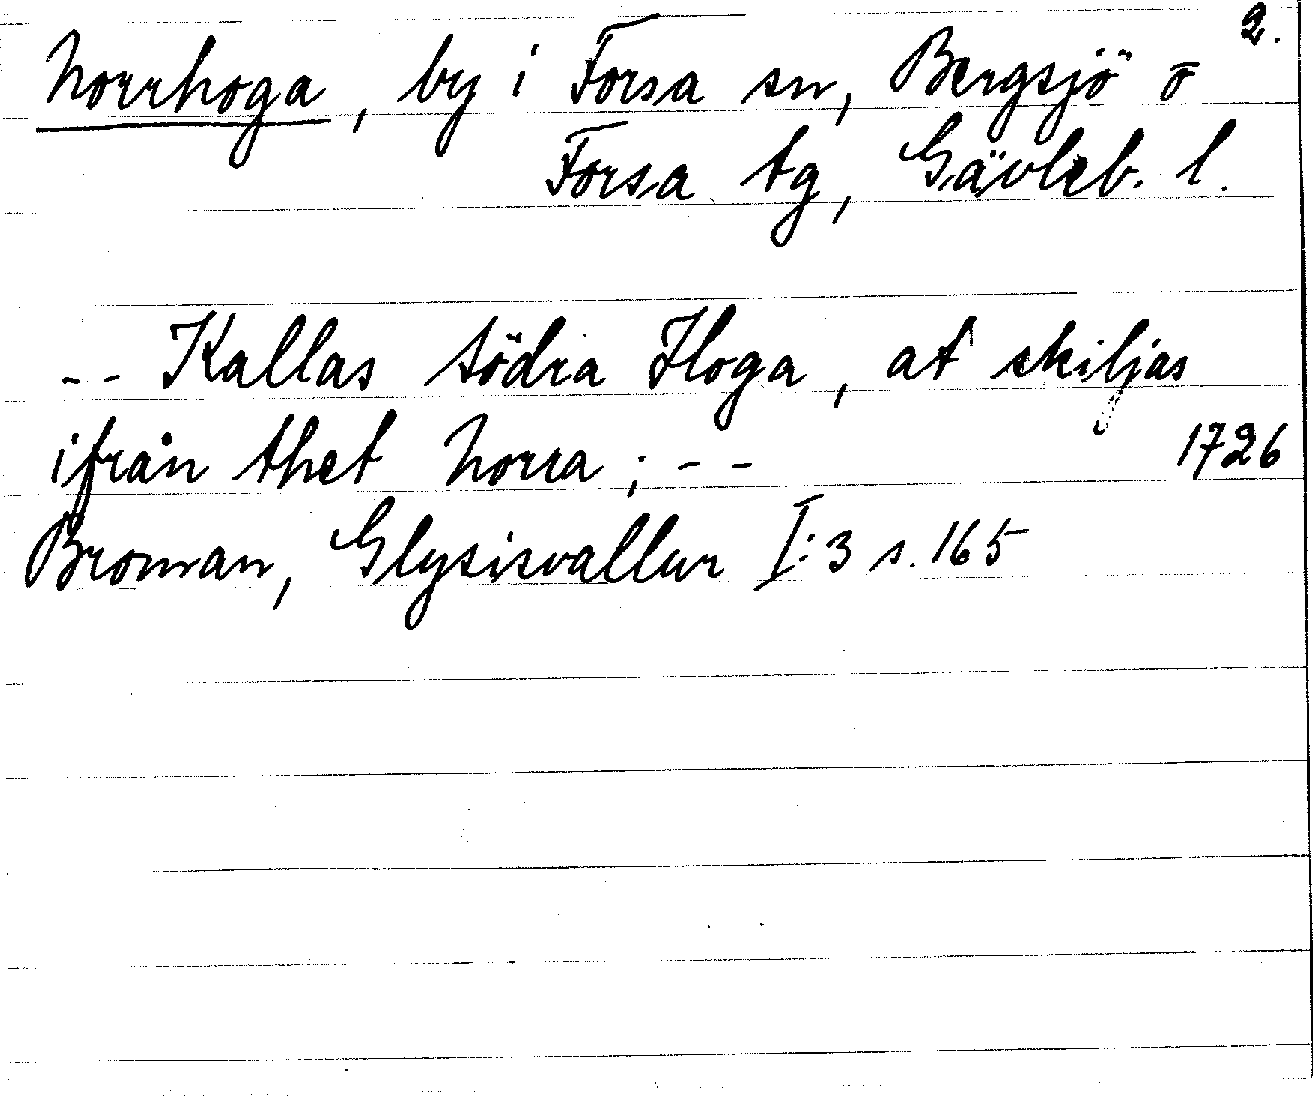 2.
Norrhoga, by i Forsa sn, Bergsjö o
Forsa tg, Gävleb. l.
-- Kallas södra Hoga, at skiljas
ifrån thet Norra; --
1726
Broman, Glysisvallur I:3 s. 165